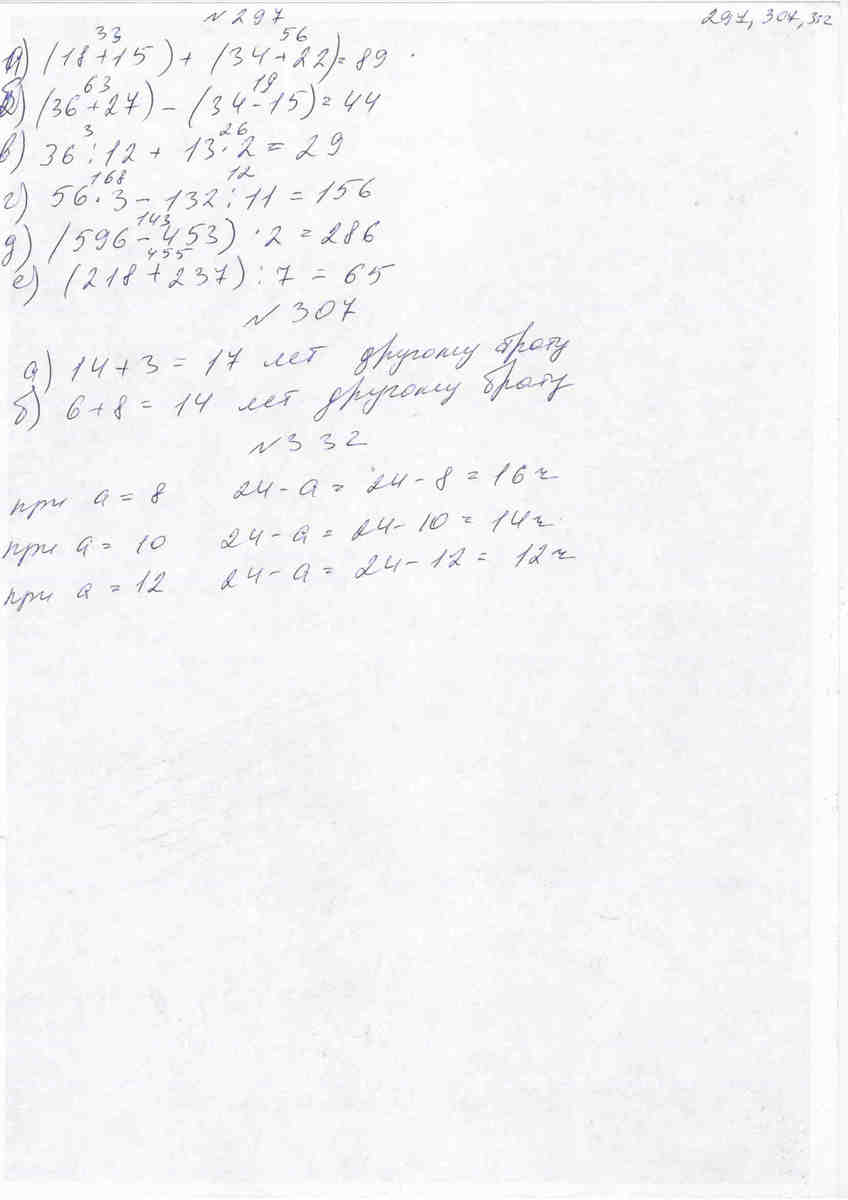 № 297
297, 307, 332
33 56
а) (18+15) + (34+22) = 89
63 19
б) (36+27) - (34-15) = 44
3 26
в) 36 : 12 + 13 · 2 = 29
168 12
г) 56 · 3 - 132 : 11 = 156
143
д) (596 - 453) · 2 = 286
455
е) (218 + 237) : 7 = 65
№ 307
а) 14 + 3 = 17 лет другому брату
б) 6 + 8 = 14 лет другому брату
№ 332
при a = 8 24 - a = 24 - 8 = 16 ч
при a = 10 24 - a = 24 - 10 = 14 ч
при a = 12 24 - a = 24 - 12 = 12 ч